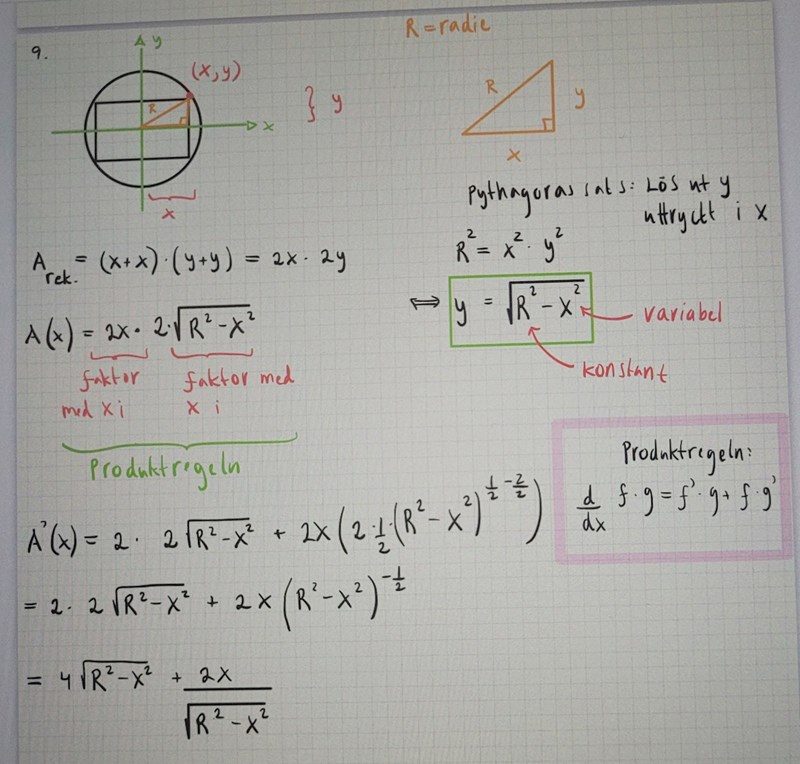 R = radie
9.
y
(x,y)
R
} y
x
x
R
y
x
Pythagoras sats: Lös ut y
uttryckt i x
R² = x² · y²
A rek. = (x+x)·(y+y) = 2x · 2y
⟺ y = √(R² − x²)
variabel
konstant
A(x) = 2x · 2·√(R² − x²)
faktor
med x i
faktor med
x i
Produktregeln
Produktregeln:
d/dx f · g = f' · g + f · g'
A'(x) = 2 · 2√(R² − x²) + 2x(2·1/2·(R² − x²)^(1/2 − 2/2))
= 2 · 2√(R² − x²) + 2x(R² − x²)^(−1/2)
= 4√(R² − x²) + 2x/√(R² − x²)